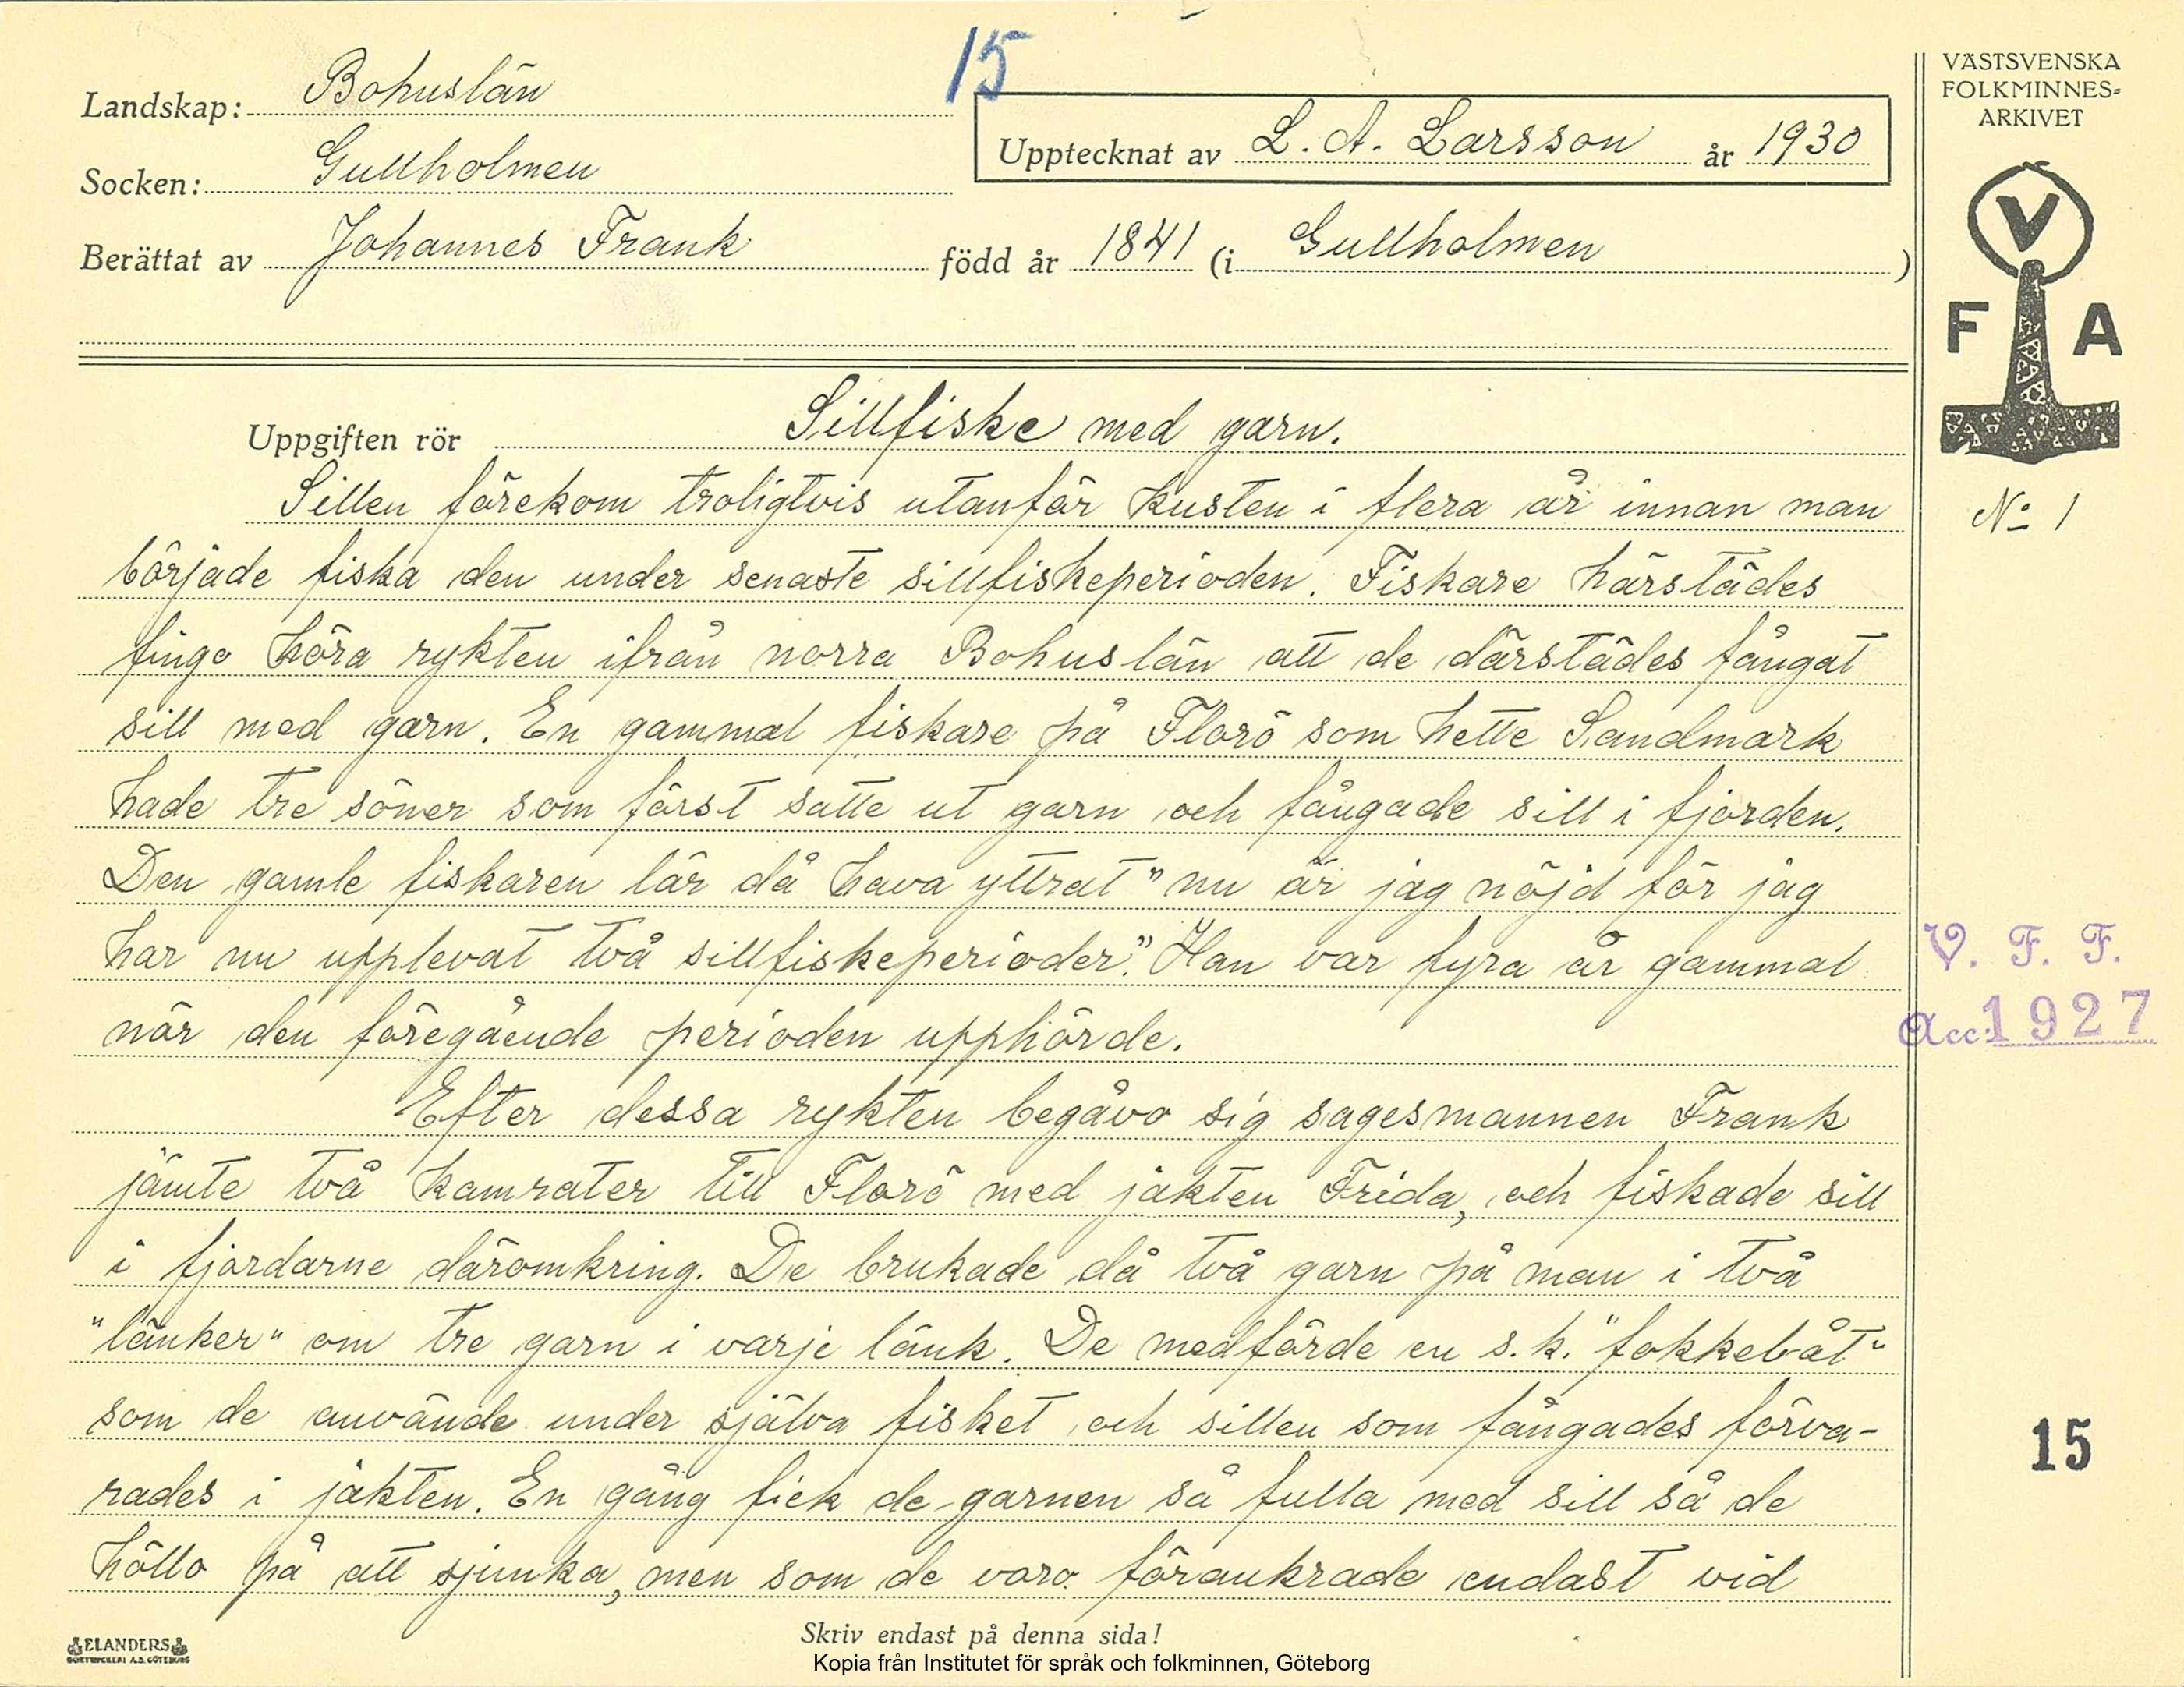 15
Landskap: Bohuslän
Upptecknat av L. A. Larsson år 1930
Socken: Gullholmen
Berättat av Johannes Frank född år 1841 (i Gullholmen )
VÄSTSVENSKA
FOLKMINNES-
ARKIVET
V
F A
No 1
Uppgiften rör Sillfiske med garn.
Sillen förekom troligtvis utanför kusten i flera år innan man
började fiska den under senaste sillfiskeperioden. Fiskare härstädes
fingo höra rykten ifrån norra Bohuslän att de därstädes fångat
sill med garn. En gammal fiskare på Florö som hette Sandmark
hade tre söner som först satte ut garn och fångade sill i fjorden.
Den gamle fiskaren lär då hava yttrat "nu är jag nöjd för jag
har nu upplevat två sillfiskeperioder". Han var fyra år gammal
när den föregående perioden upphörde.
Efter dessa rykten begåvo sig sagesmannen Frank
jämte två kamrater till Florö med jakten Frida, och fiskade sill
i fjordarne däromkring. De brukade då två garn på man i två
"länker" om tre garn i varje länk. De medförde en s.k. "fokkebåt"
som de använde under själva fisket och sillen som fångades förva-
rades i jakten. En gång fick de garnen så fulla med sill så de
höllo på att sjunka, men som de voro förankrade endast vid
V. F. F.
Acc: 1927
15
Skriv endast på denna sida!
ELANDERS
BOKTRYCKERI A.B. GÖTEBORG
Kopia från Institutet för språk och folkminnen, Göteborg